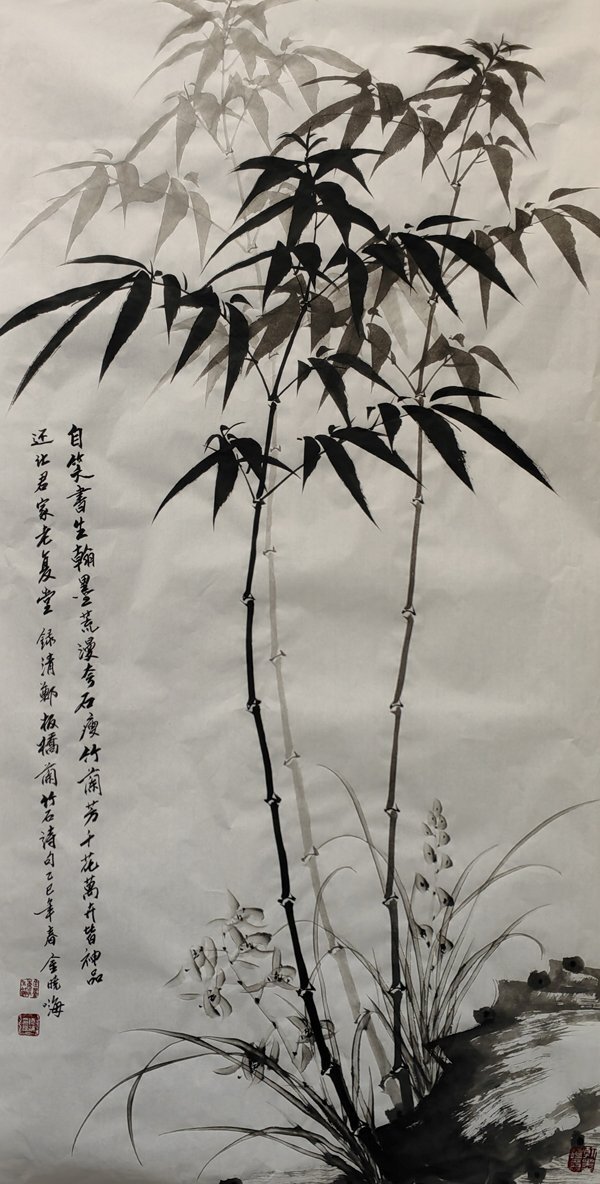 自笑書生翰墨荒漫夸石瘦竹蘭芳千花萬卉皆神品
还让君家老复堂 録清鄭板橋蘭竹石詩句乙巳年春 金曉海